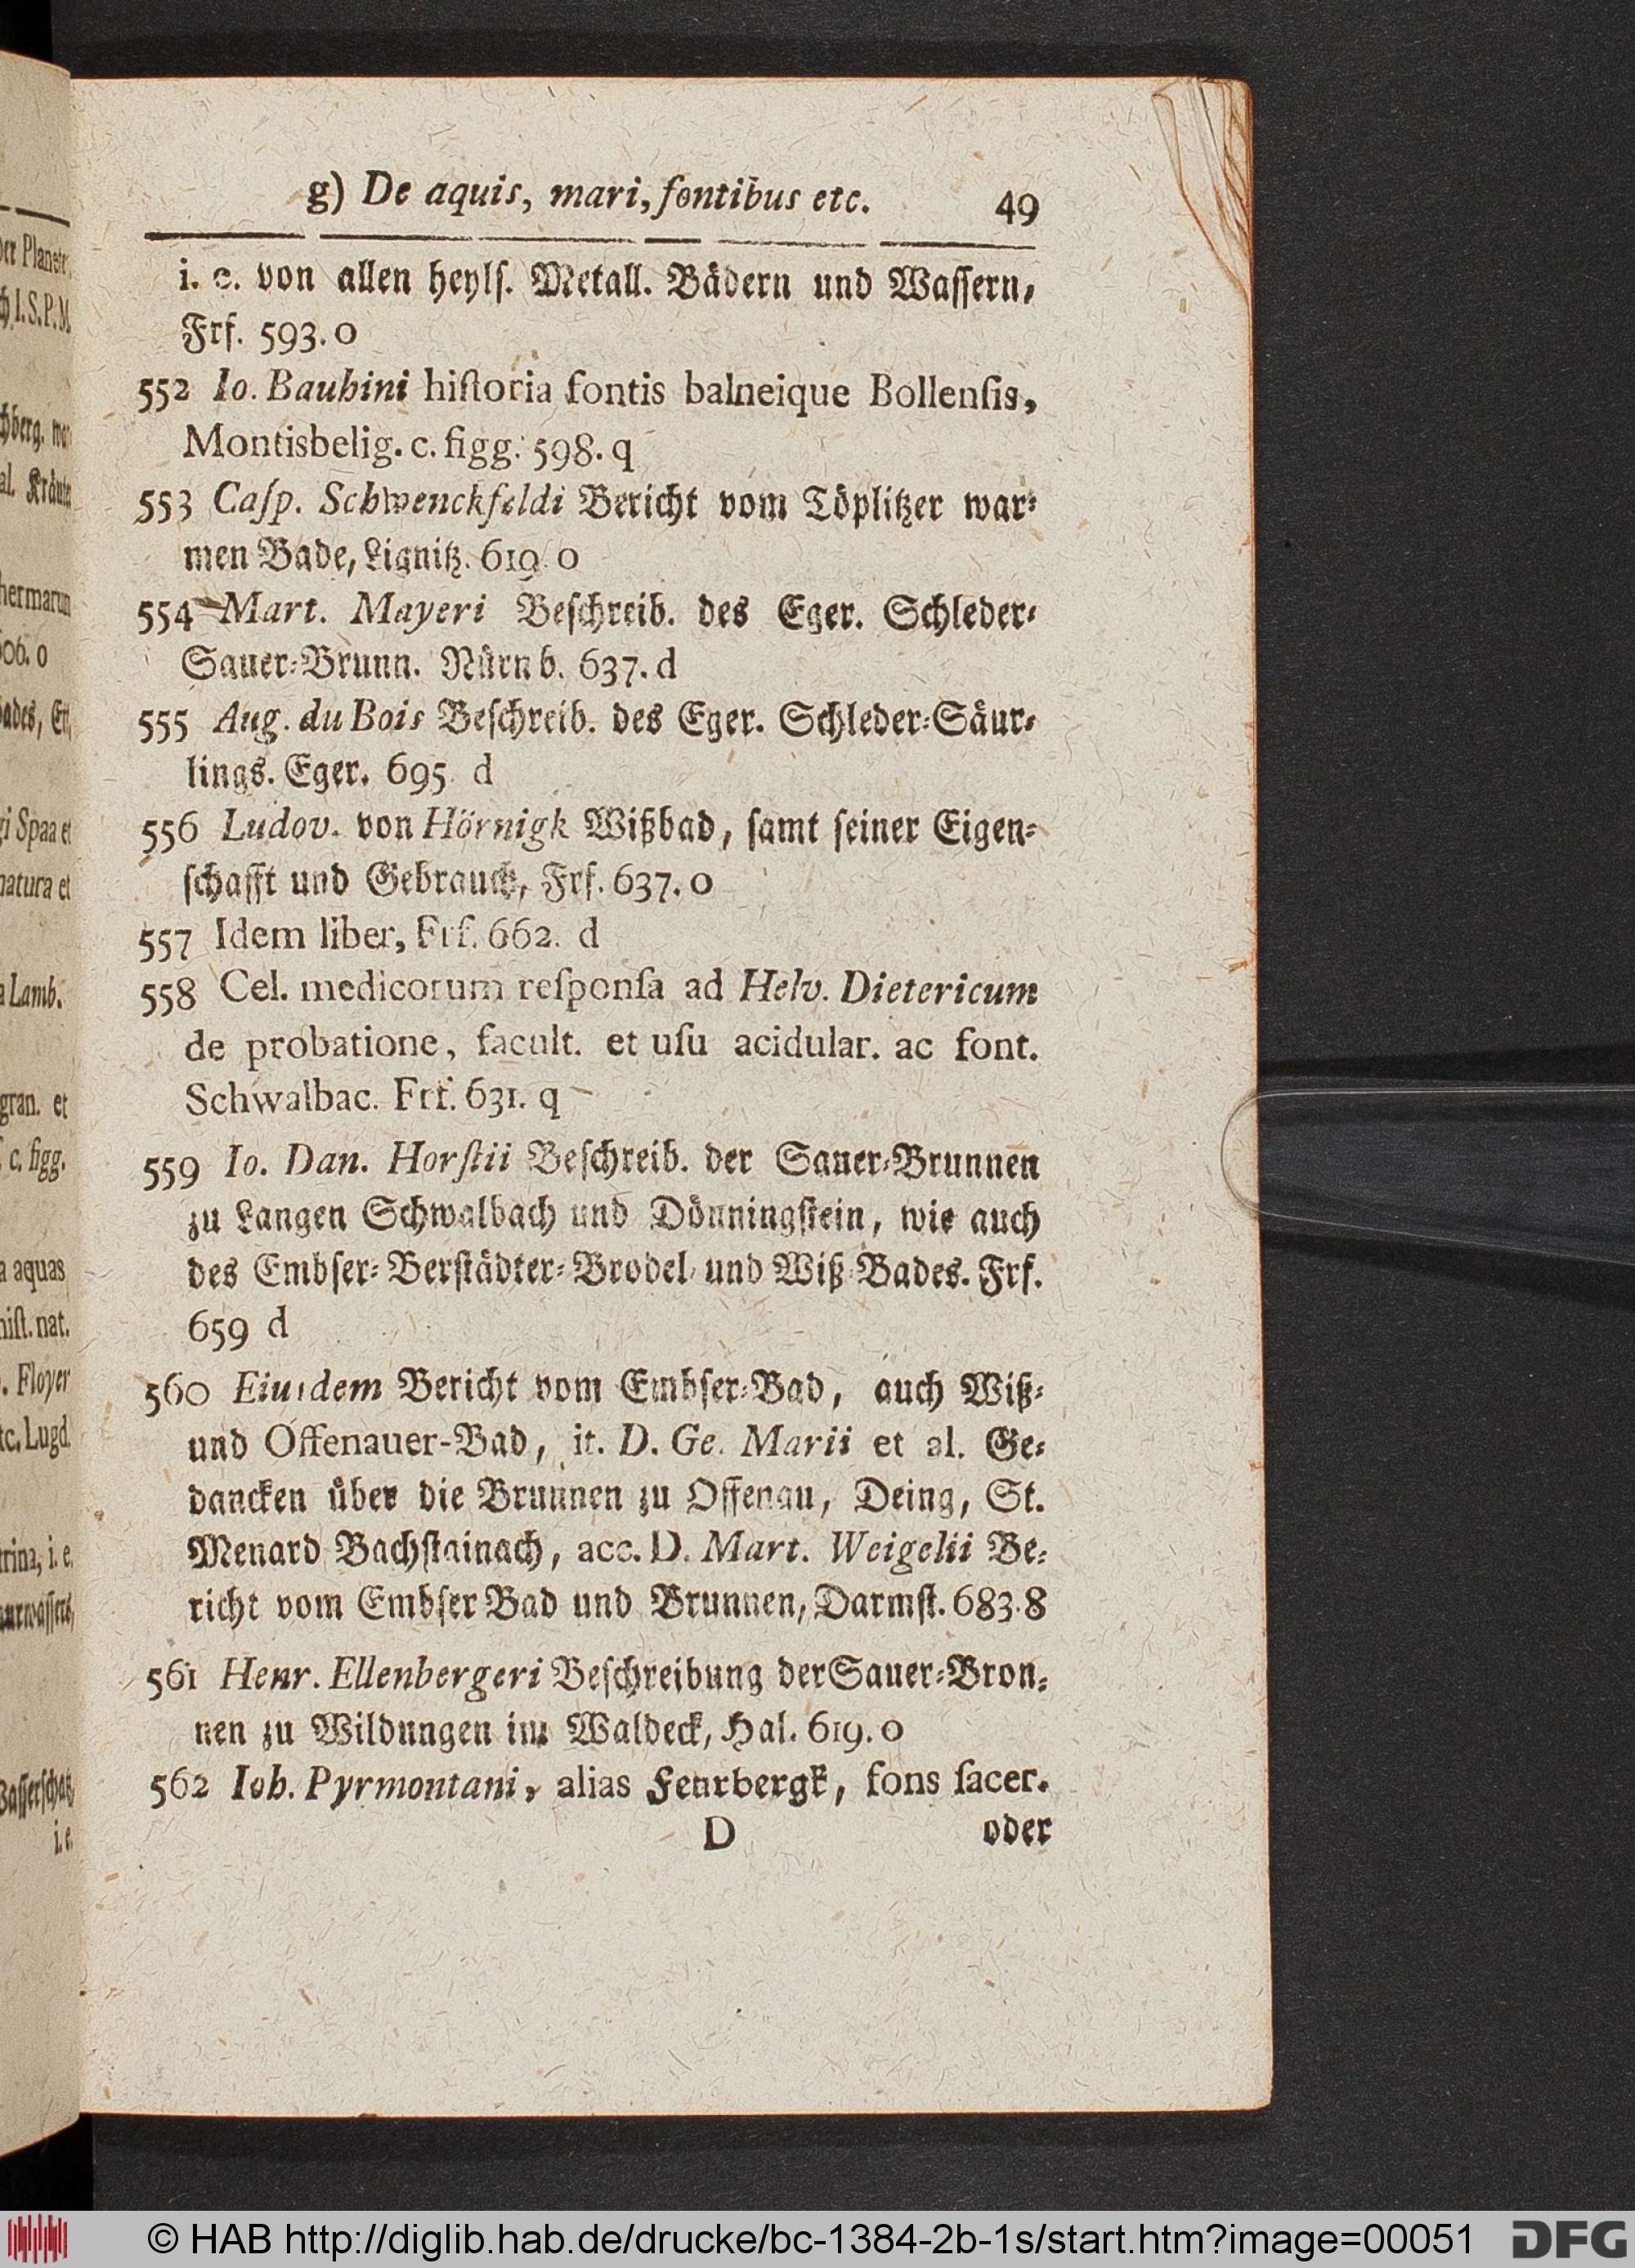 g) De aquis, mari, fontibus etc. 49
i. e. von allen heylſ. Metall. Bädern und Waſſern,
Frf. 593. o
552 Io. Bauhini hiſtoria fontis balneique Bollenſis,
Montisbelig. c. figg. 598. q
553 Caſp. Schwenckfeldi Bericht vom Töplitzer war-
men Bade, Lignitz. 619. o
554 Mart. Mayeri Beſchreib. des Eger. Schleder-
Sauer-Brunn. Nürnb. 637. d
555 Aug. du Bois Beſchreib. des Eger. Schleder-Säur-
lings. Eger. 695. d
556 Ludov. von Hörnigk Wißbad, ſamt ſeiner Eigen-
ſchafft und Gebrauch, Frf. 637. o
557 Idem liber, Frf. 662. d
558 Cel. medicorum reſponſa ad Helv. Dietericum
de probatione, facult. et uſu acidular. ac font.
Schwalbac. Frf. 631. q
559 Io. Dan. Horſtii Beſchreib. der Sauer-Brunnen
zu Langen Schwalbach und Dönningſtein, wie auch
des Embſer- Berſtädter- Brodel- und Wiß-Bades. Frf.
659 d
560 Eiusdem Bericht vom Embſer-Bad, auch Wiß-
und Offenauer-Bad, it. D. Ge. Marii et al. Ge-
dancken über die Brunnen zu Offenau, Deing, St.
Menard Bachſtainach, acc. D. Mart. Weigelii Be-
richt vom Embſer Bad und Brunnen, Darmſt. 683. 8
561 Henr. Ellenbergeri Beſchreibung der Sauer-Bron-
nen zu Wildungen im Waldeck, Hal. 619. o
562 Ioh. Pyrmontani, alias Feurbergk, fons ſacer.
D oder
der Planete
I. S. P. M.
chberg.
Kräut
hermarum
606. o
Bades,
Spaa et
natura et
Lamb.
gran. et
c. figg.
aquas
hiſt. nat.
Floyer
tc. Lugd.
i. e.
aurwaſſers,
Waſſerſchatz
i. e.
© HAB http://diglib.hab.de/drucke/bc-1384-2b-1s/start.htm?image=00051
DFG